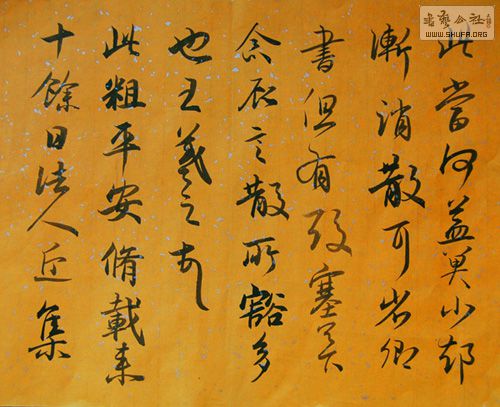 此當何益冀小却
漸消散耳省卿
書但有酸塞足下
念故言散所豁多
也王羲之
此粗平安脩載来
十餘日諸人近集
書藝公社
WWW.SHUFA.ORG